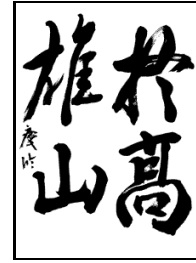 於高
雄山
慶